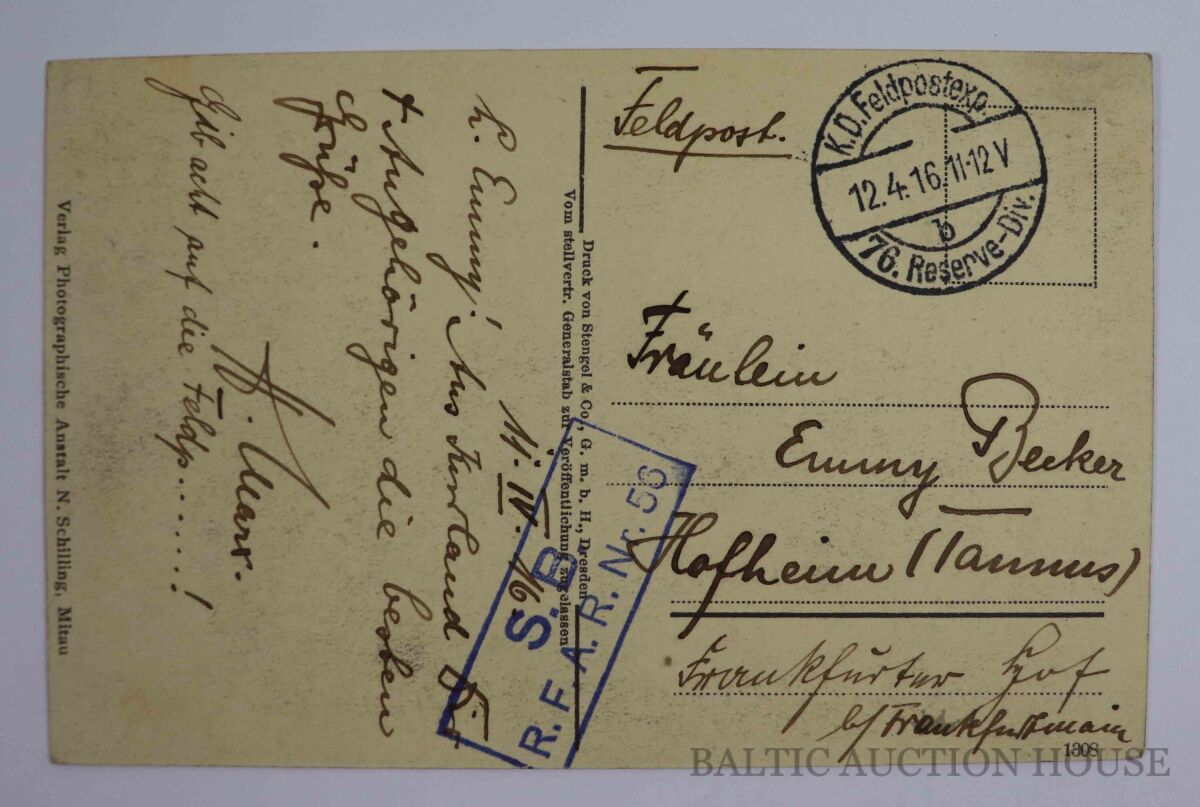 Feldpost.
K.D. Feldpostexp.
12.4.16. 11-12 V
b
76. Reserve-Div.
Fräulein
Emmy Becker
Hofheim (Taunus)
Frankfurter Hof
b/ Frankfurtmain
1308
Druck von Stengel & Co., G. m. b. H., Dresden
Vom stellvertr. Generalstab zur Veröffentlichung zugelassen
S. B.
R. F. A. R. Nr. 56
11. IV. 16.
L. Emmy! Aus Kurland Dir
+ Angehörigen die besten
Grüße.
H. Marx.
Gib acht auf die Feldp......!
Verlag Photographische Anstalt N. Schilling, Mitau
BALTIC AUCTION HOUSE